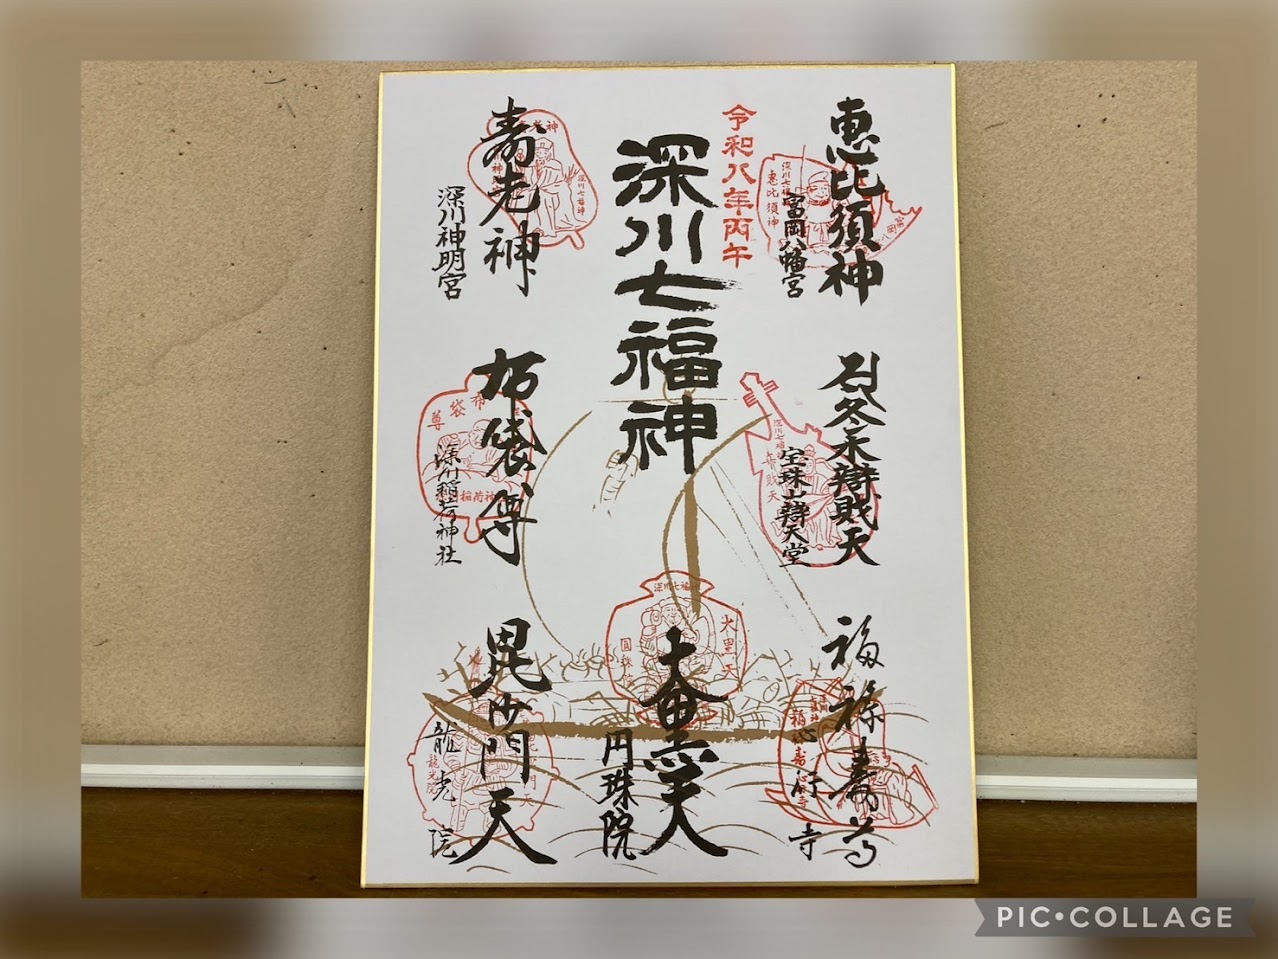 恵比須神
富岡八幡宮
令和八年丙午
深川七福神
寿老神
深川神明宮
冬木辯財天
宝珠山辯天堂
布袋尊
深川稲荷神社
福禄寿尊
心行寺
大黒天
円珠院
毘沙門天
龍光院
深川七福神
恵比須神
布袋尊
稲荷神
深川七福神
大黒天
圓珠院
龍光院
PIC•COLLAGE